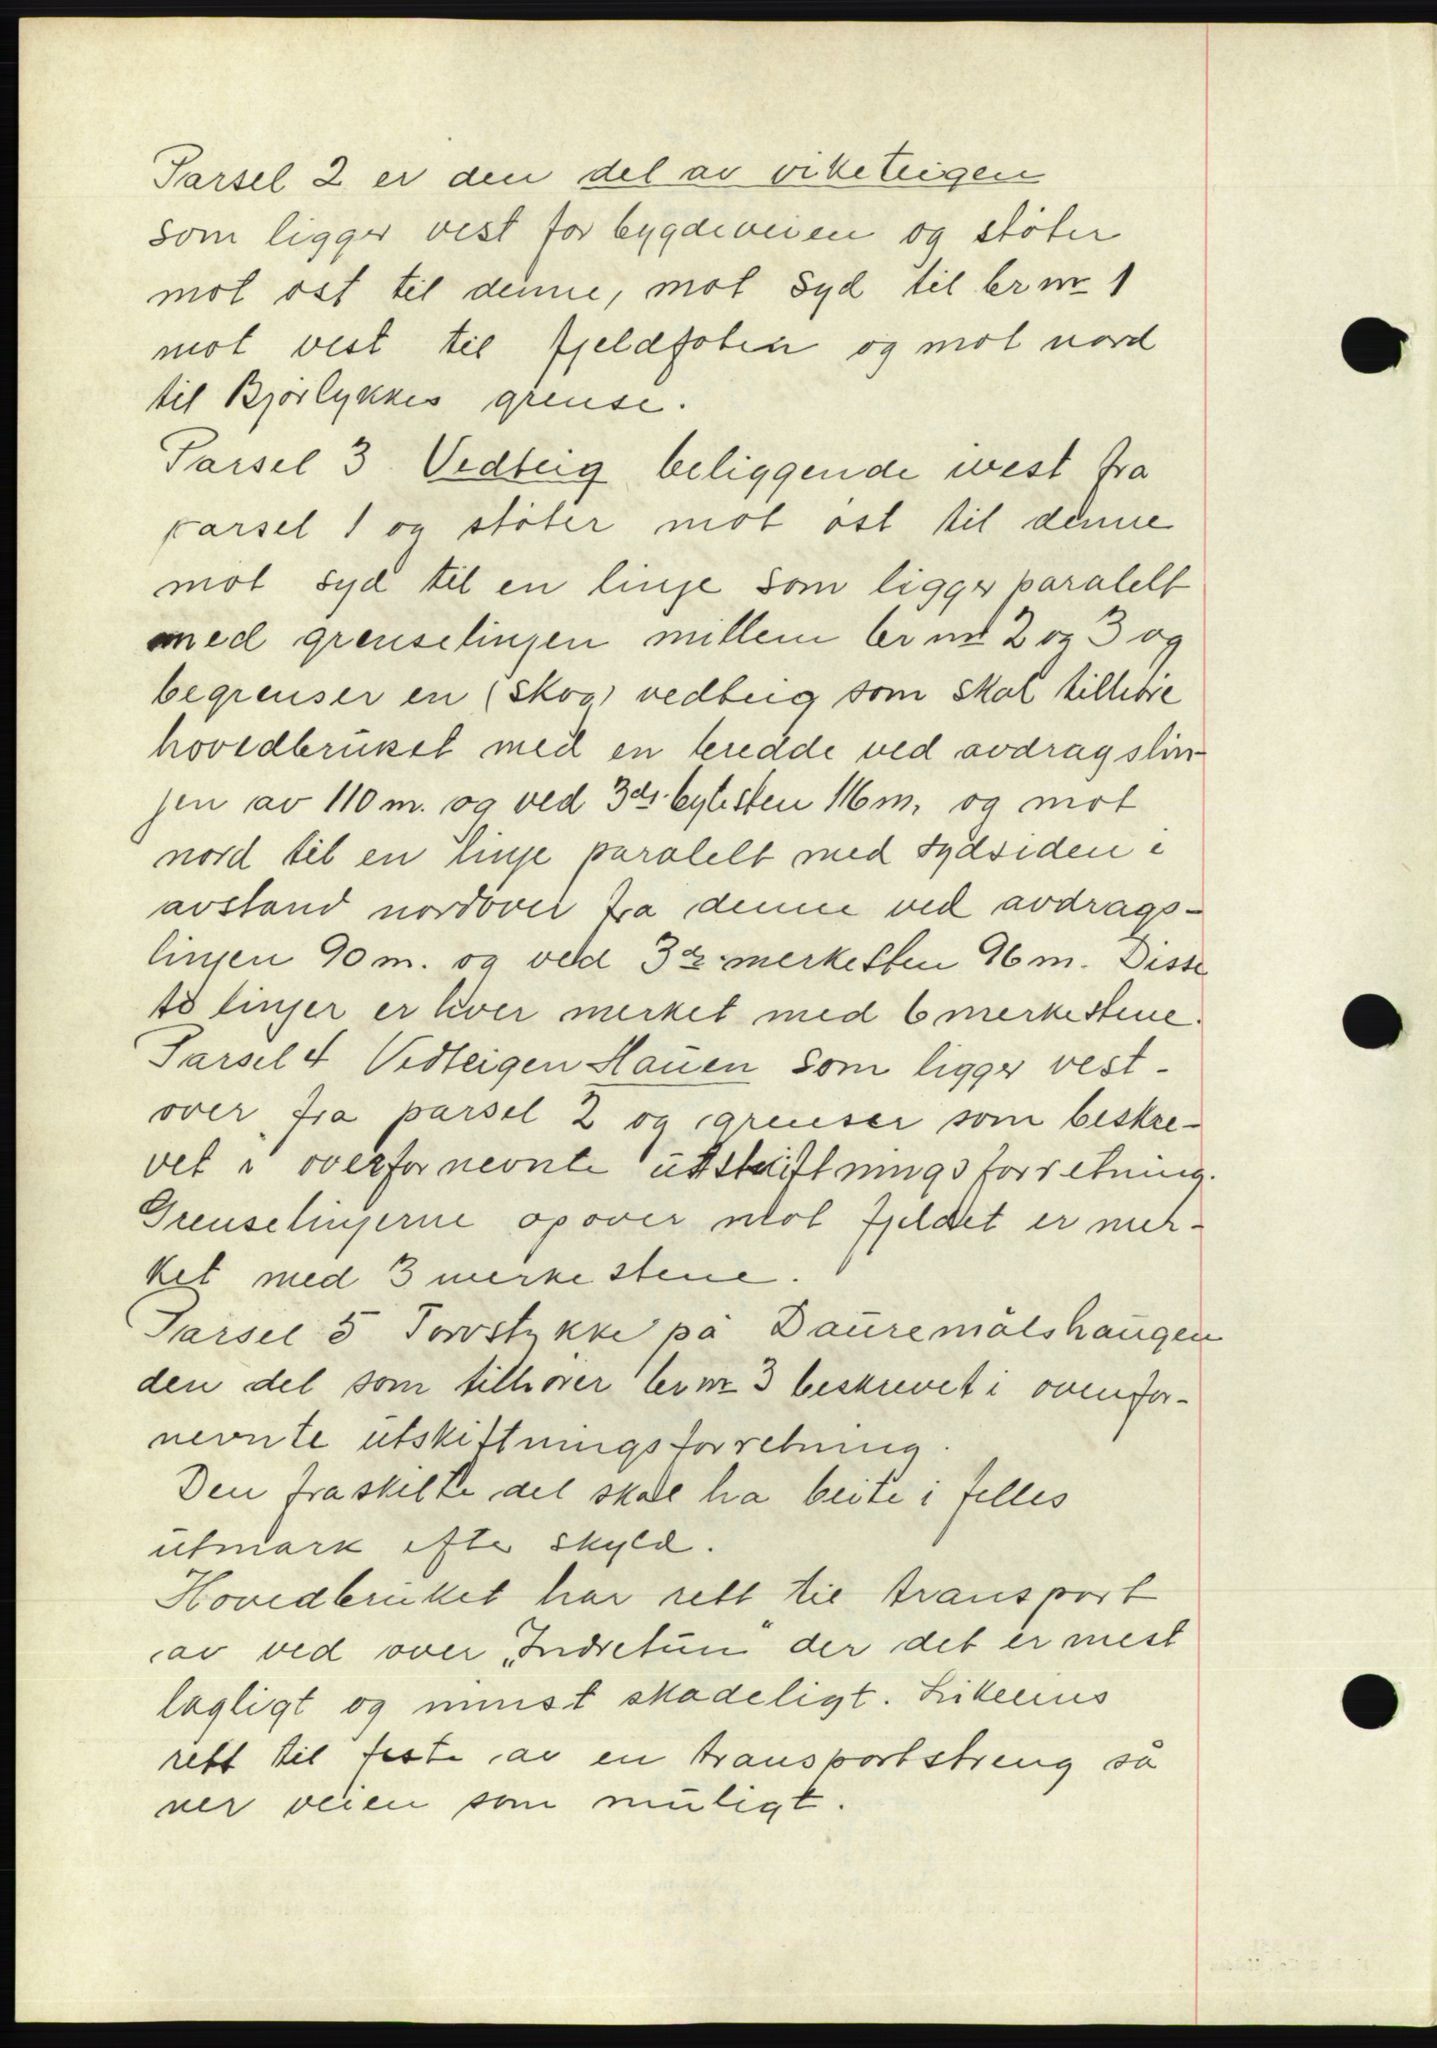 Parsel 2 er den del av viketeigen
som ligger vest for bygdeveien og støter
mot øst til denne, mot syd til br nr 1
mot vest til fjeldfoten og mot nord
til Bjørlykkes grense.
Parsel 3 Vedteig beliggende ivest fra
parsel 1 og støter mot øst til denne
mot syd til en linje som ligger paralelt
med grenselinjen millem br nr 2 og 3 og
begrenser en (skog) vedteig som skal tilhøre
hovedbruket med en bredde ved avdragslin-
jen av 110 m. og ved 3dj. bytesten 116 m, og mot
nord til en linje paralelt med sydsiden i
avstand nordover fra denne ved avdrags-
linjen 90 m. og ved 3dj. merkesten 96 m. Disse
to linjer er hver merket med 6 merkestene.
Parsel 4 Vedteigen Hauen som ligger vest-
over fra parsel 2 og grenser som beskre-
vet i overfornevnte utskiftningsforretning.
Grenselinjerne opover mot fjeldet er mer-
ket med 3 merkestene.
Parsel 5 Torvstykke på Dauremålshaugen
den del som tilhører br nr 3 beskrevet i ovenfor-
nevnte utskiftningsforretning.
Den fraskilte del skal ha beite i felles
utmark efter skyld.
Hovedbruket har rett til transport
av ved over „Indretun“ der det er mest
lagligt og minst skadeligt. Likeeins
rett til feste av en transportstreng så
ner veien som muligt.